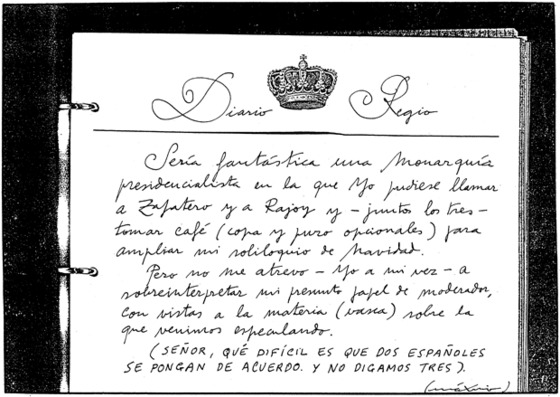 Diario Regio
Sería fantástica una Monarquía
presidencialista en la que Yo pudiese llamar
a Zapatero y a Rajoy y – juntos los tres –
tomar café (copa y puro opcionales) para
ampliar mi soliloquio de Navidad.
Pero no me atrevo – Yo a mi vez – a
sobreinterpretar mi presunto papel de moderador,
con vistas a la materia (vasca) sobre la
que venimos especulando.
(SEÑOR, QUÉ DIFÍCIL ES QUE DOS ESPAÑOLES
SE PONGAN DE ACUERDO. Y NO DIGAMOS TRES).
(máximo)